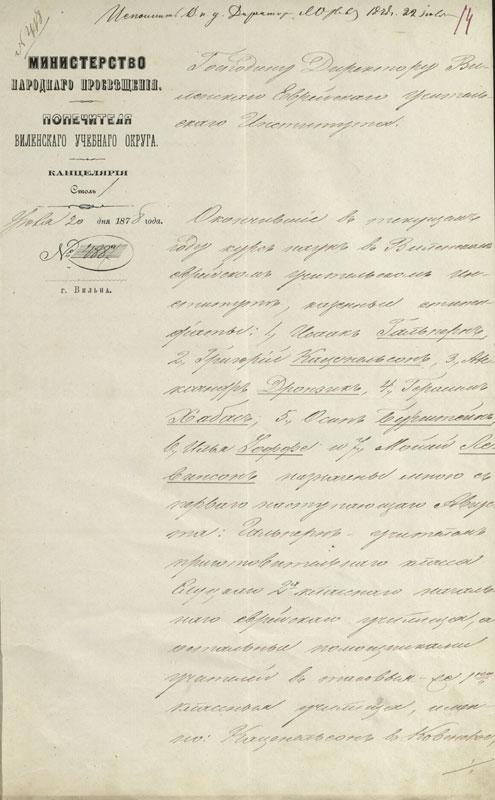 № 418
14
МИНИСТЕРСТВО
НАРОДНАГО ПРОСВѢЩЕНІЯ.
ПОПЕЧИТЕЛЯ
ВИЛЕНСКАГО УЧЕБНАГО ОКРУГА.
КАНЦЕЛЯРІЯ
Столъ 1
20 дня 1878 года.
№
г. Вильна.
Господину Директору Ви-
ленскаго Еврейскаго учитель-
скаго Института.
Окончившіе въ текущемъ
году курсъ наукъ въ Виленскомъ
еврейскомъ учительскомъ ин-
ститутѣ, казенные стипен-
діаты: 1, Исаакъ Гальпернъ,
2, Григорій Каценельсонъ, 3, Але-
ксандръ 4,
Хабасъ, 5, Осипъ Бурштейнъ,
6, Илья Іоффе и 7, Мойсей Ле-
винсонъ назначены мною съ
перваго наступающаго Авгу-
ста: Гальпернъ - учителемъ
приготовительнаго класса
Слуцкаго 2х класснаго началь-
наго еврейскаго училища, а
остальные помощниками
учителей въ таковыя-же
классныя училища, имен-
но: Каценельсонъ въ Ковенское,